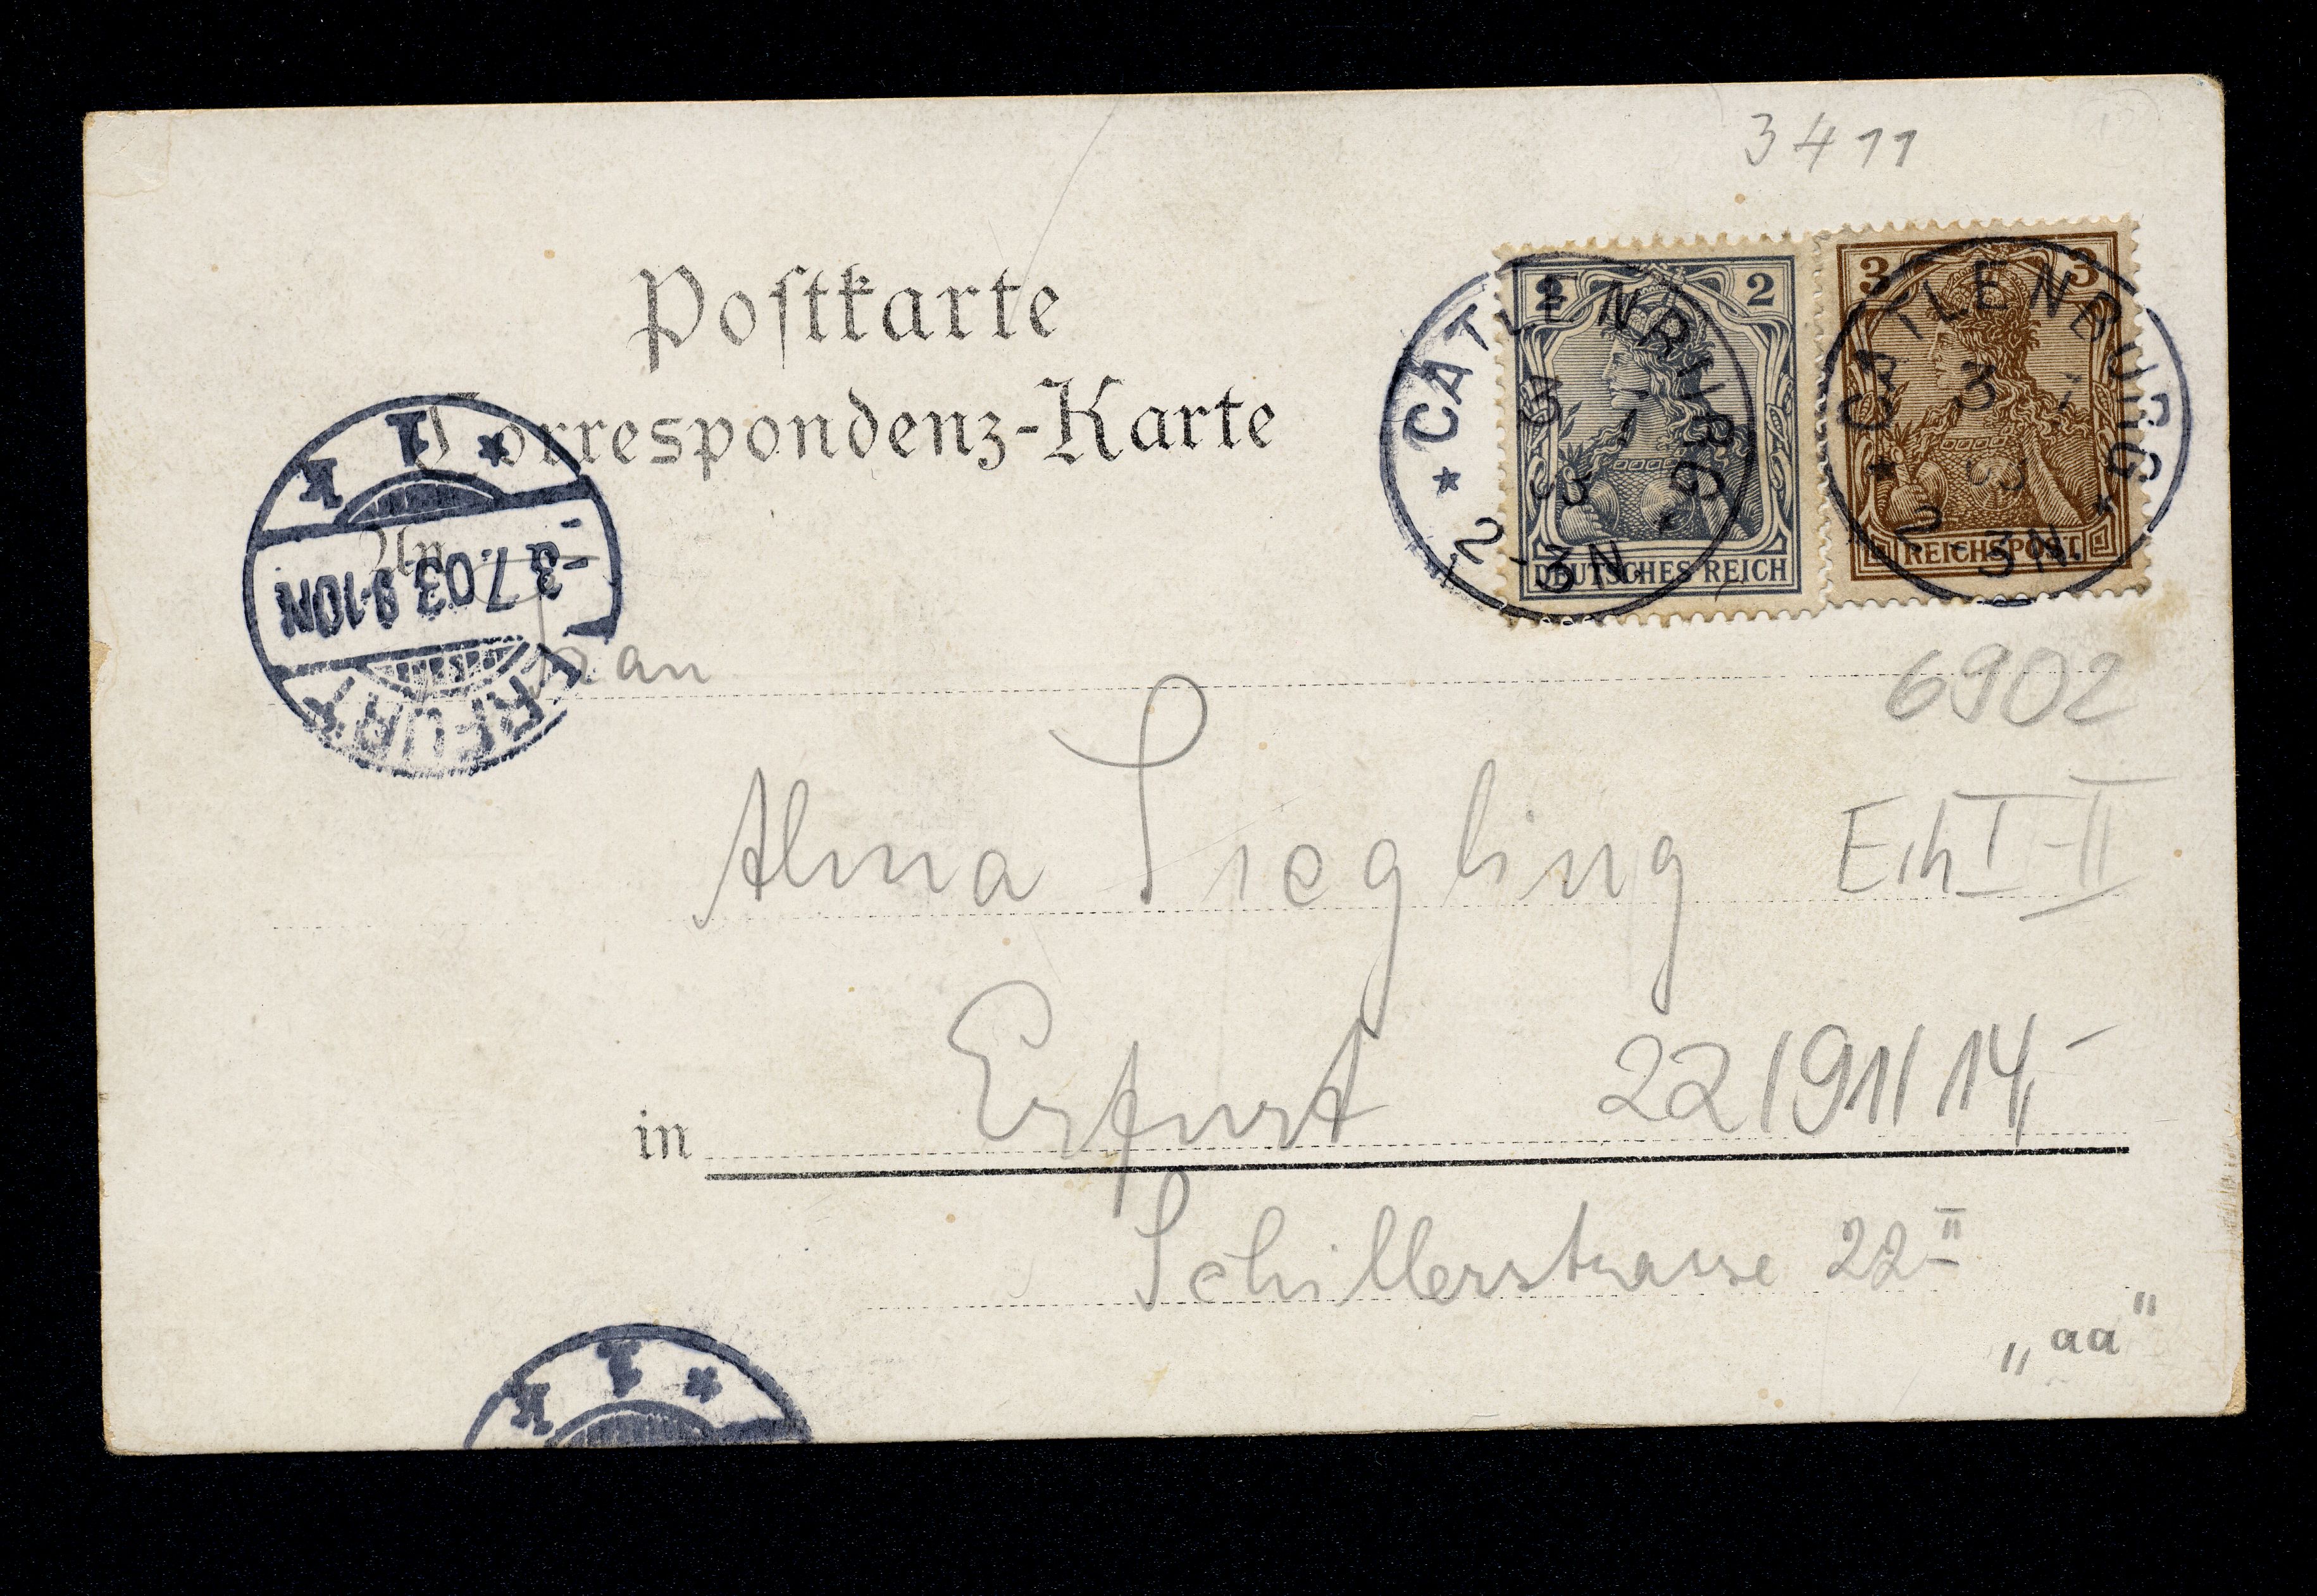 3411
Postkarte
Correspondenz-Karte
2 2
DEUTSCHES REICH
3 3
REICHSPOST
* CATLENBURG *
3 7 03
2-3N.
* CATLENBURG *
3 7 03
2-3N.
ERFURT
-3.7.03.9-10N
* 1 k
An
Frau
6902
Alma Siegling
Erh I-II
in Erfurt
22/91/14,-
Schillerstrasse 22 II
„aa"
* 1 k